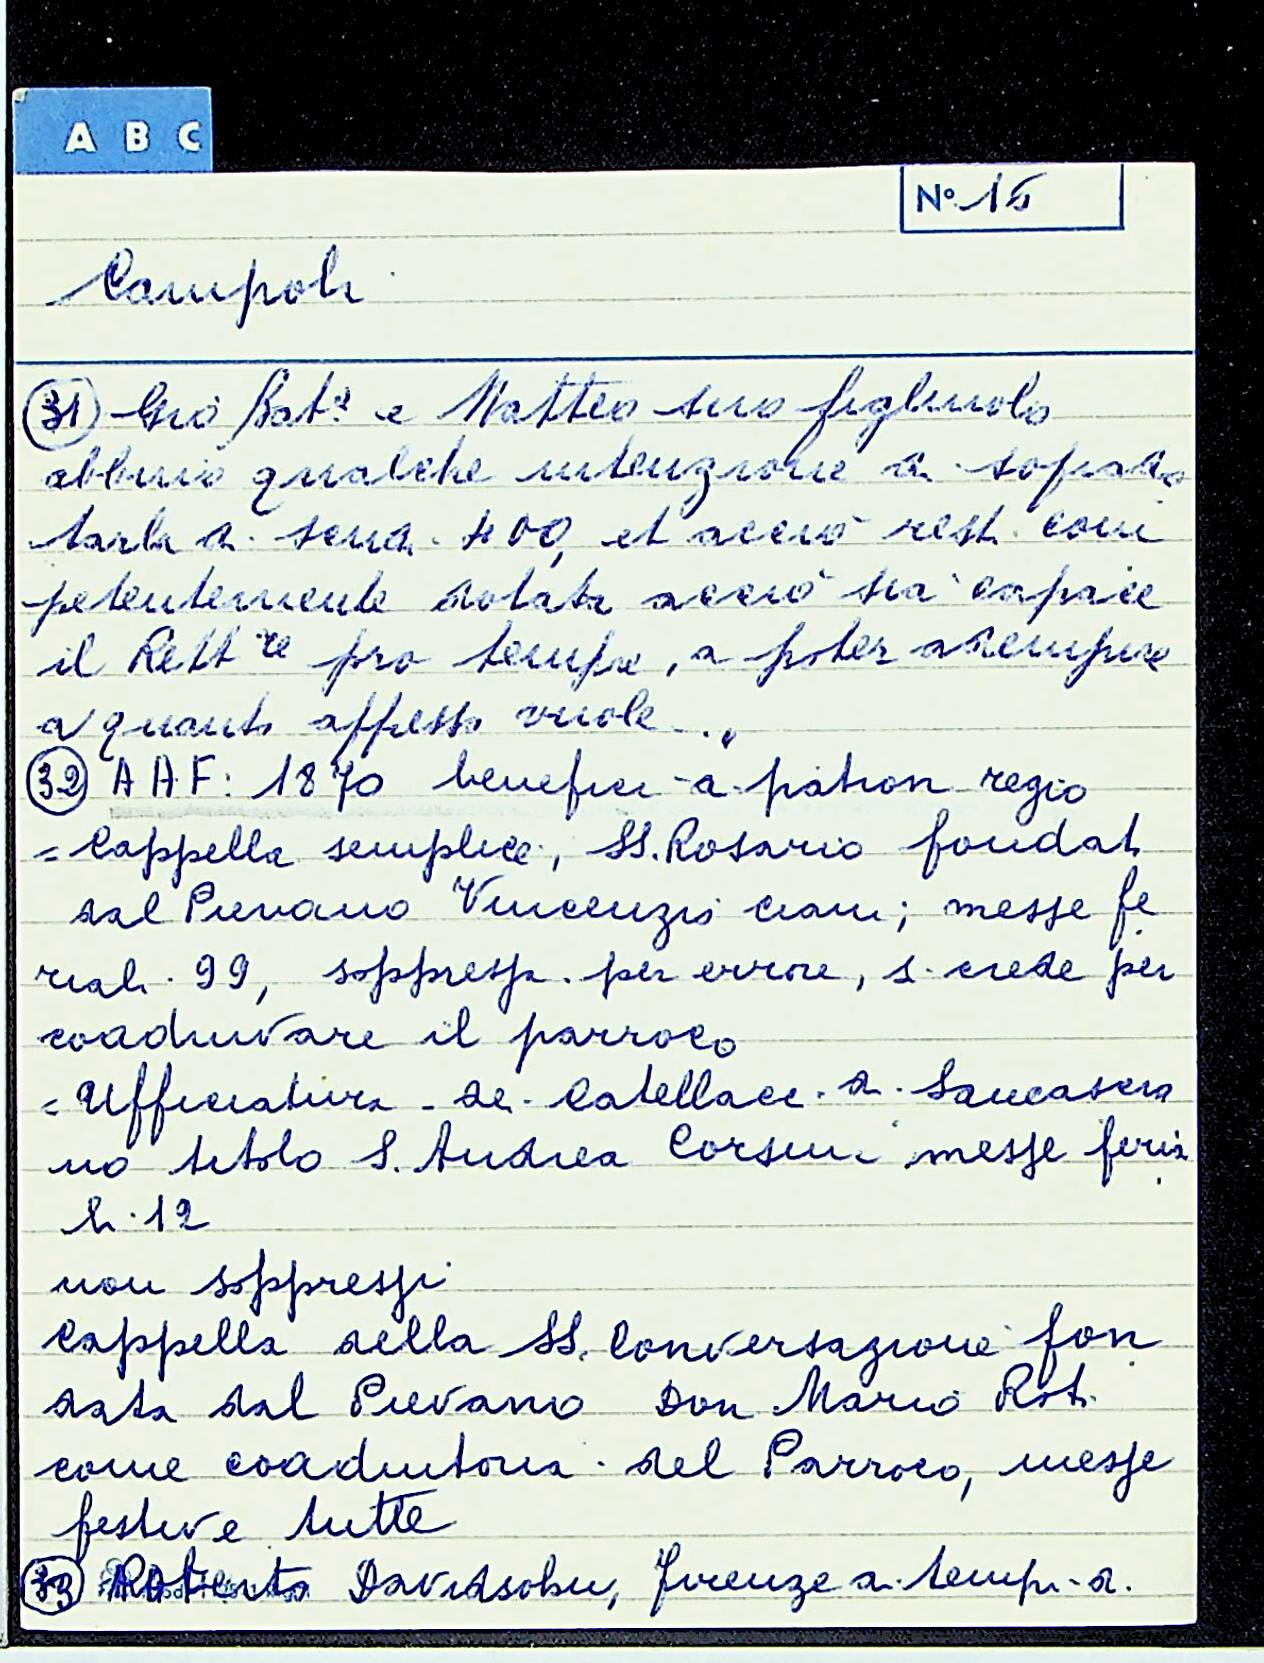 A B C
Nº 15
Campoli
31 Gio Batª e Matteo suo figliuolo
abbino qualche intenzione di sopra do
tarla di scudi 400, et acciò resti com
petentemente dotata acciò sia capace
il Rettre pro tempre, a poter adempire
a quanto appresso vuole..
32 AAF: 1870 benefici di patron regio
= Cappella semplice, SS. Rosario fondata
dal Pievano Vincenzio Ciani; messe fe
riali 99, soppressa per errore, si crede per
coadiuvare il parroco
= Ufficiatura dei Catellacci di Sancascia
no titolo S. Andrea Corsini messe feria
li 12
non soppressi
Cappella della SS. Conversazione fon
data dal Pievano Don Mario Roti
come coadiutoria del Parroco, messe
festive tutte
33 Roberto Davidsohn, Firenze ai tempi di